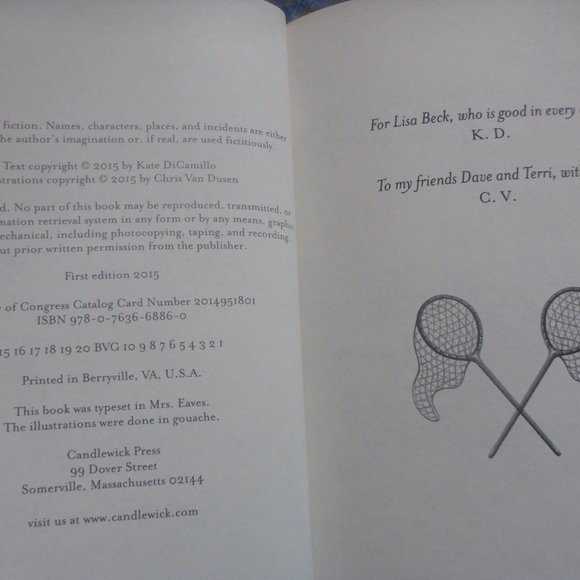 fiction. Names, characters, places, and incidents are either
he author's imagination or, if real, are used fictitiously.
Text copyright © 2015 by Kate DiCamillo
strations copyright © 2015 by Chris Van Dusen
d. No part of this book may be reproduced, transmitted, or
nation retrieval system in any form or by any means, graphic,
echanical, including photocopying, taping, and recording,
ut prior written permission from the publisher.
First edition 2015
y of Congress Catalog Card Number 2014951801
ISBN 978-0-7636-6886-0
15 16 17 18 19 20 BVG 10 9 8 7 6 5 4 3 2 1
Printed in Berryville, VA, U.S.A.
This book was typeset in Mrs. Eaves.
The illustrations were done in gouache.
Candlewick Press
99 Dover Street
Somerville, Massachusetts 02144
visit us at www.candlewick.com
For Lisa Beck, who is good in every
K. D.
To my friends Dave and Terri, wit
C. V.